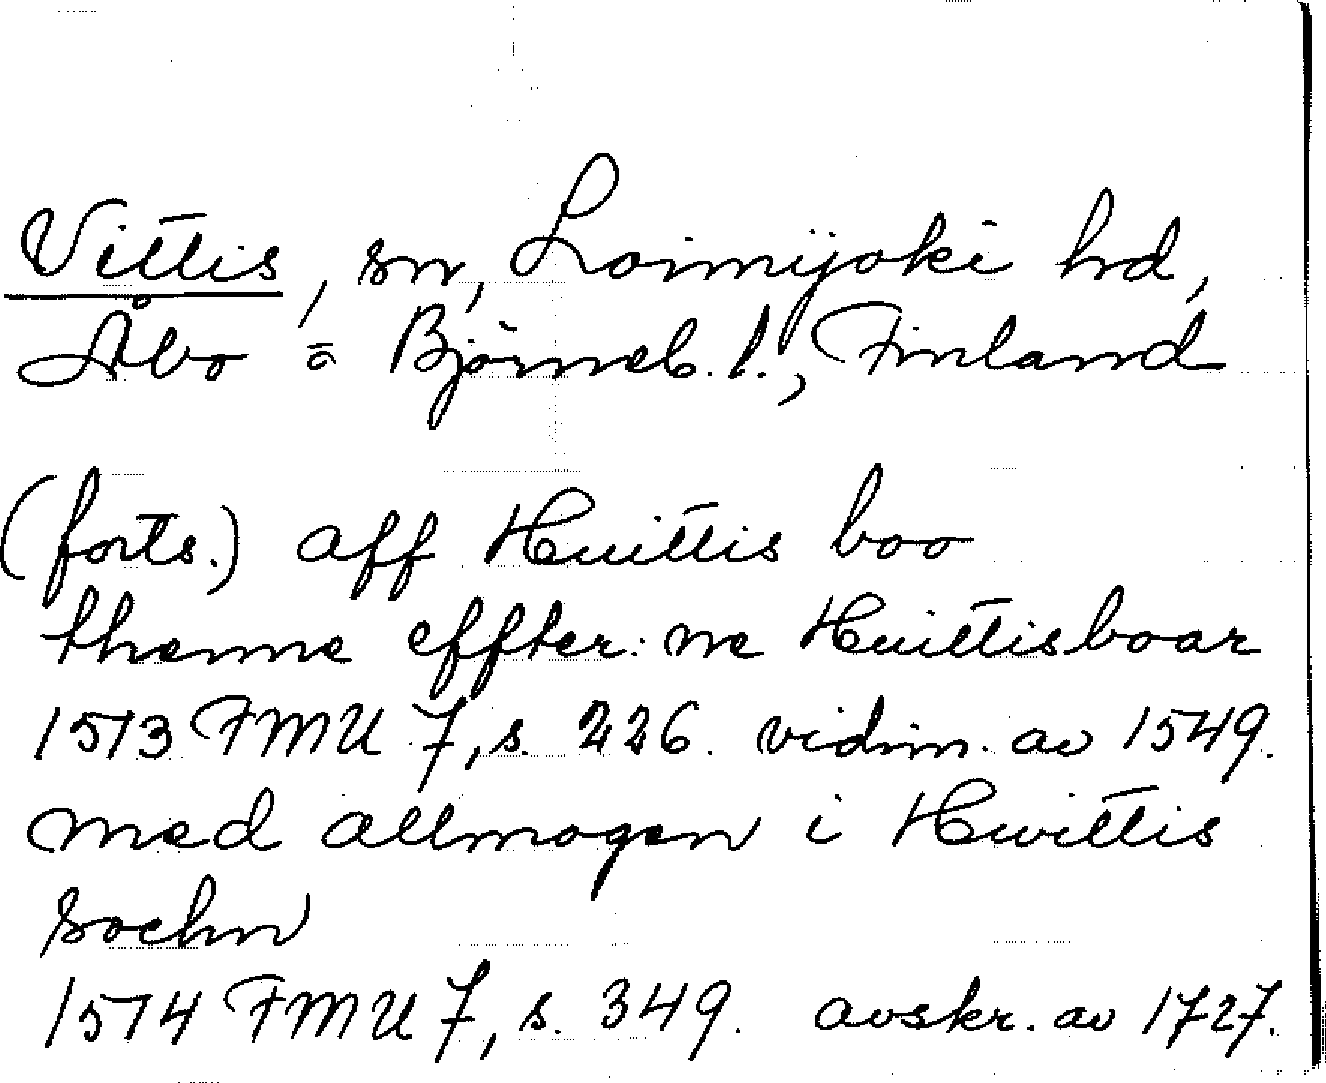 Vittis, sn, Loimijoki hd,
Åbo = Björneb. l., Finland
(forts.) aff Huittis boo
thenne effter: ne Huittisboar
1513 FMU 7, s. 226. vidim. av 1549.
med allmogen i Hwittis
sochn
1514 FMU 7, s. 349. avskr. av 1727.